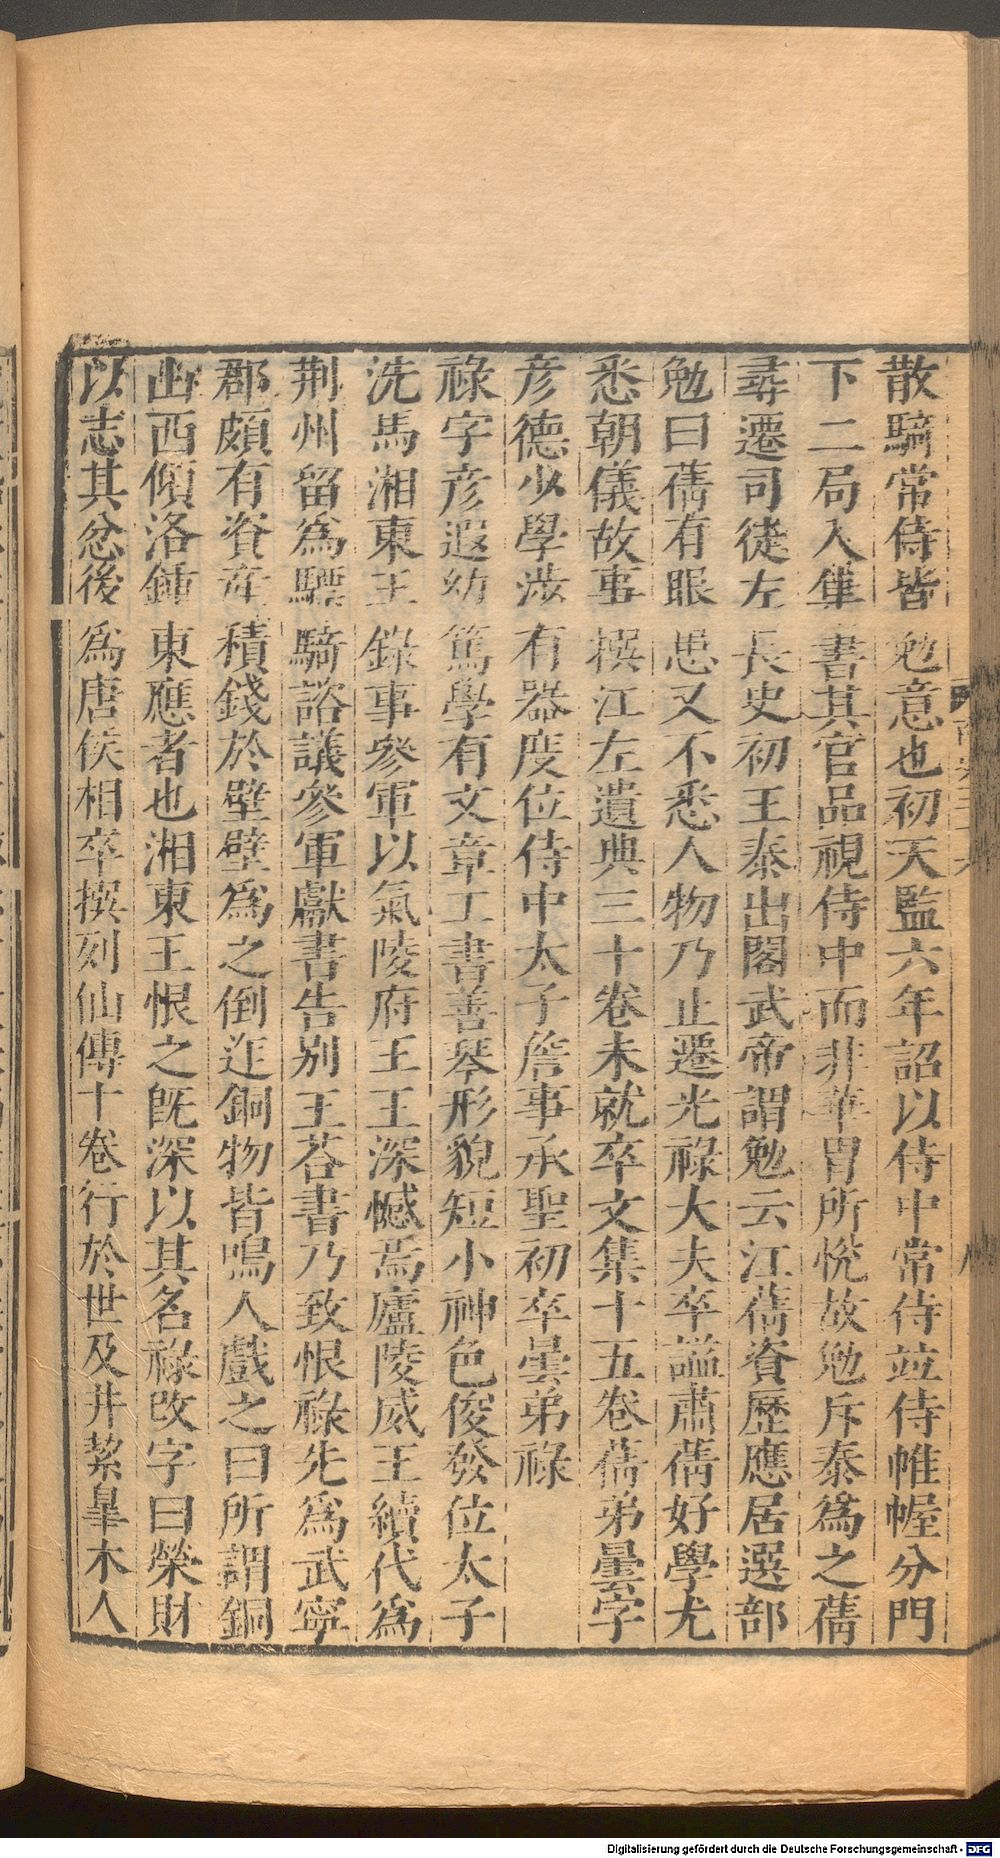 散騎常侍皆勉意也初天監六年詔以侍中常侍竝侍帷幄分門
下二局入隼書其官品視侍中而非華胄所悅故勉斥泰爲之蒨
尋遷司徒左長史初王泰出閣武帝謂勉云江蒨資歷應居選部
勉曰蒨有眼患又不悉人物乃止遷光祿大夫卒謚肅蒨好學尤
悉朝儀故事撰江左遺典三十卷未就卒文集十五卷蒨弟曇字
彦德少學涉有器度位侍中太子詹事承聖初卒曇弟祿
祿字彦遐幼篤學有文章工書善琴形貌短小神色俊發位太子
洗馬湘東王錄事參軍以氣陵府王王深憾焉廬陵威王續代爲
荆州留爲驃騎諮議參軍獻書告别王荅書乃致恨祿先爲武寧
郡頗有資産積錢於壁壁爲之倒迮銅物皆鳴人戲之曰所謂銅
山西傾洛鍾東應者也湘東王恨之旣深以其名祿改字曰榮財
以志其忿後爲唐侯相卒撰列仙傳十卷行於世及井絜臯木人
Digitalisierung gefördert durch die Deutsche Forschungsgemeinschaft - DFG